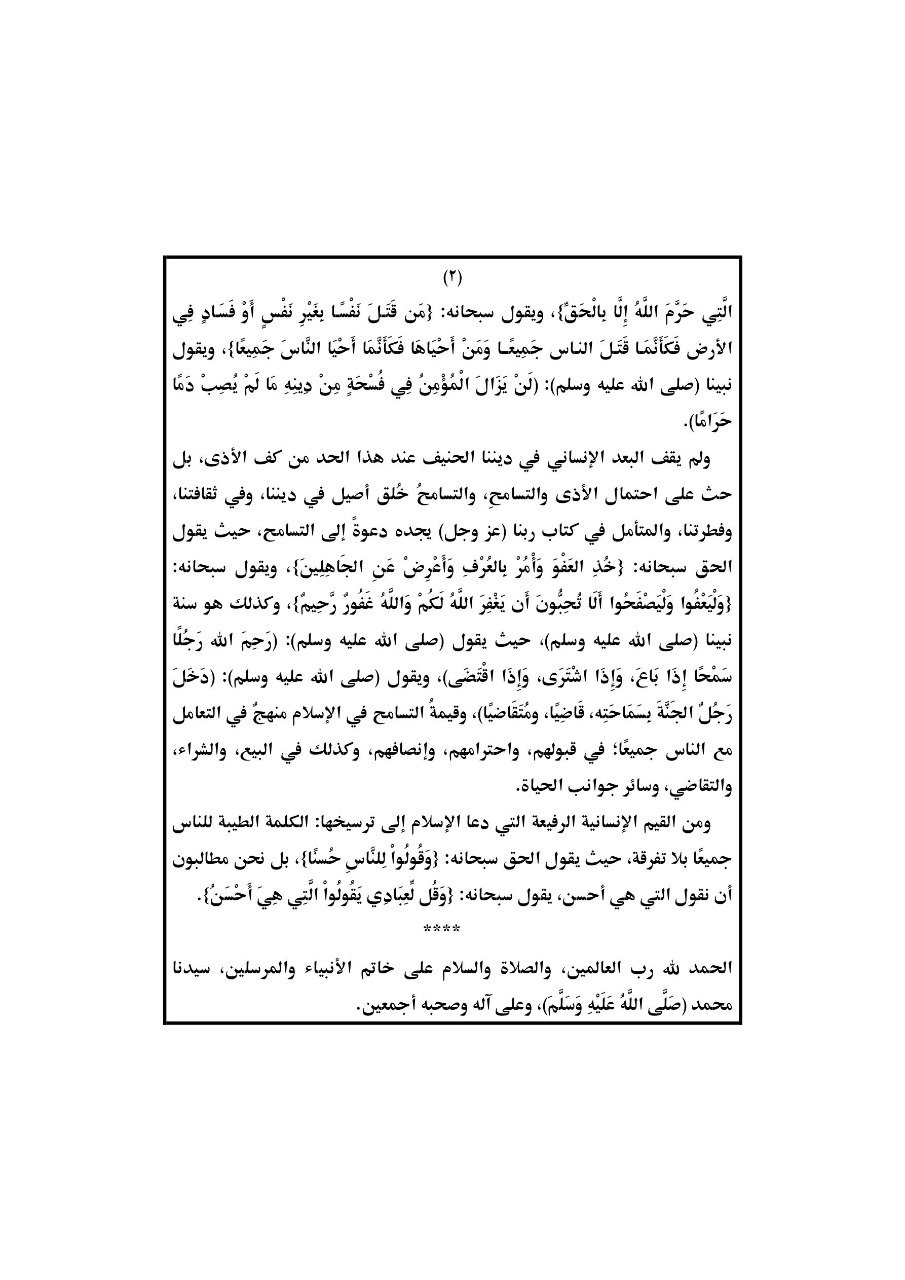 (٢)
الَّتِي حَرَّمَ اللَّهُ إِلَّا بِالْحَقِّ}، ويقول سبحانه: {مَن قَتَلَ نَفْسًا بِغَيْرِ نَفْسٍ أَوْ فَسَادٍ فِي
الأرض فَكَأَنَّمَا قَتَلَ الناس جَمِيعًا وَمَنْ أَحْيَاهَا فَكَأَنَّمَا أَحْيَا النَّاسَ جَمِيعًا}، ويقول
نبينا (صلى الله عليه وسلم): (لَنْ يَزَالَ الْمُؤْمِنُ فِي فُسْحَةٍ مِنْ دِينِهِ مَا لَمْ يُصِبْ دَمًا
حَرَامًا).
ولم يقف البعد الإنساني في ديننا الحنيف عند هذا الحد من كف الأذى، بل
حث على احتمال الأذى والتسامحِ، والتسامحُ خُلق أصيل في ديننا، وفي ثقافتنا،
وفطرتنا، والمتأمل في كتاب ربنا (عز وجل) يجده دعوةً إلى التسامح، حيث يقول
الحق سبحانه: {خُذِ العَفْوَ وَأْمُرْ بِالعُرْفِ وَأَعْرِضْ عَنِ الجَاهِلِينَ}، ويقول سبحانه:
{وَلْيَعْفُوا وَلْيَصْفَحُوا أَلَا تُحِبُّونَ أَن يَغْفِرَ اللَّهُ لَكُمْ وَاللَّهُ غَفُورٌ رَّحِيمٌ}، وكذلك هو سنة
نبينا (صلى الله عليه وسلم)، حيث يقول (صلى الله عليه وسلم): (رَحِمَ الله رَجُلًا
سَمْحًا إِذَا بَاعَ، وَإِذَا اشْتَرَى، وَإِذَا اقْتَضَى)، ويقول (صلى الله عليه وسلم): (دَخَلَ
رَجُلٌ الجَنَّةَ بِسَمَاحَتِه، قَاضِيًا، ومُتَقَاضِيًا)، وقيمةُ التسامح في الإسلام منهجٌ في التعامل
مع الناس جميعًا؛ في قبولهم، واحترامهم، وإنصافهم، وكذلك في البيع، والشراء،
والتقاضي، وسائر جوانب الحياة.
ومن القيم الإنسانية الرفيعة التي دعا الإسلام إلى ترسيخها: الكلمة الطيبة للناس
جميعًا بلا تفرقة، حيث يقول الحق سبحانه: {وَقُولُواْ لِلنَّاسِ حُسنًا}، بل نحن مطالبون
أن نقول التي هي أحسن، يقول سبحانه: {وَقُل لِّعِبَادِي يَقُولُواْ الَّتِي هِيَ أَحْسَنُ}.
****
الحمد لله رب العالمين، والصلاة والسلام على خاتم الأنبياء والمرسلين، سيدنا
محمد (صَلَّى اللَّهُ عَلَيْهِ وَسَلَّمَ)، وعلى آله وصحبه أجمعين.